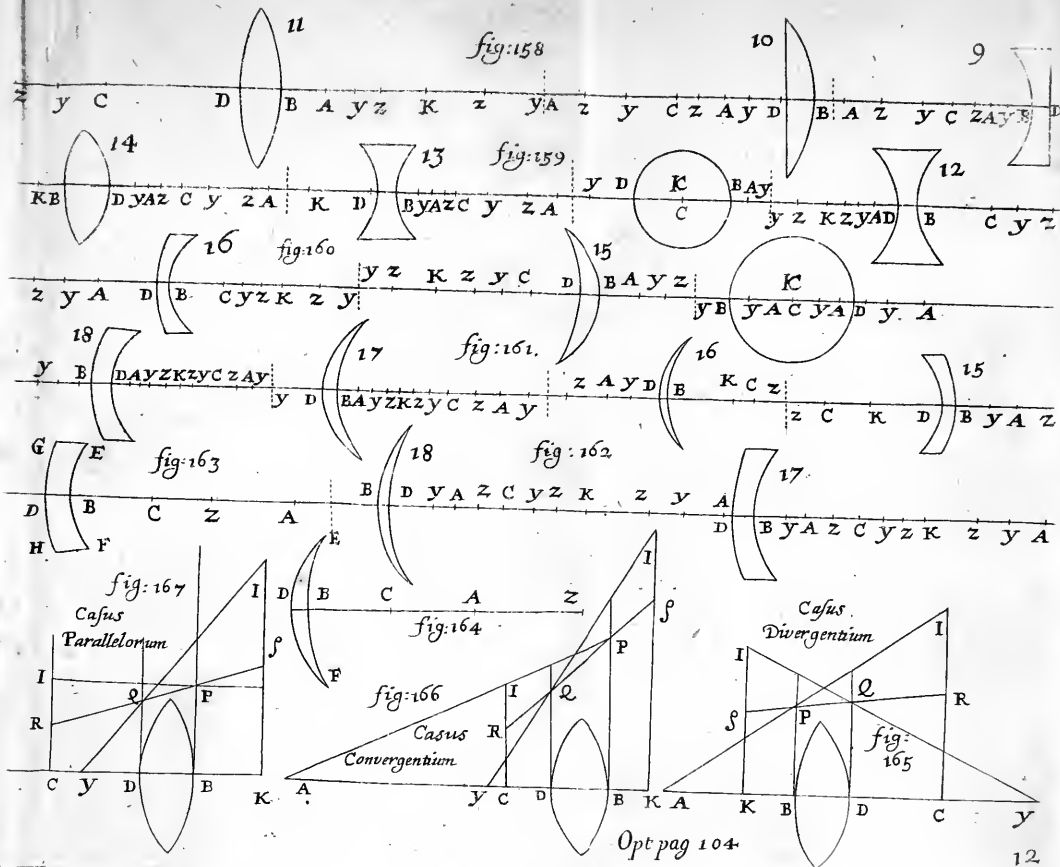 11 fig:158 10 9
z y C D B A y z K z y A z y C z A y D B A z y C z A y B D
14 13 fig:159 12
K B D y A z C y z A K D B y A z C y z A y D K C B A y y z K z y A D B C y z
16 fig:160 15
z y A D B C y z K z y y z K z y C D B A y z y B K y A C y A D y A
18 17 fig:161. 16 15
y B D A y z K z y C z A y y D B A y z K z y C z A y z A y D B K C z z C K D B y A z
G E fig:163 18 fig:162 17
D B C z A B D y A z C y z K z y A D B y A z C y z K z y A
H F
fig:167
Casus
Parallelorum
I
I ſ
Q P
R
C y D B K
E
D B C A z
fig:164
F
fig:166
I
ſ
P
I Q
R
Casus
Convergentium
A y C D B K
Casus
Divergentium
I I
Q
ſ P R
fig:
165
K A B D C y
Opt pag 104
12